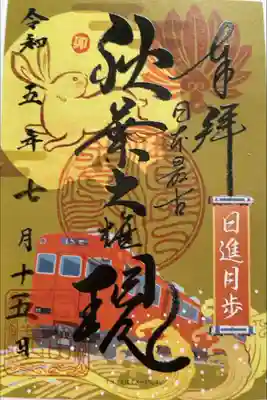 奉拝
日進月歩
日本最古
秋葉大権現
卯
令和五年七月十五日